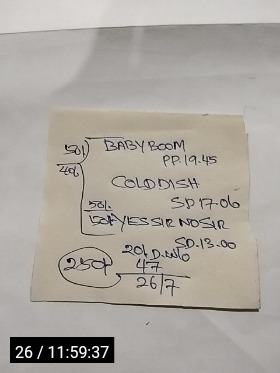 50/- BABY BOOM
40/- PP.19.45
COLD DISH
50/- SP 17.06
50/- YES SIR NO SIR
SP.13.00
250/-
47
26/7
26 / 11:59:37